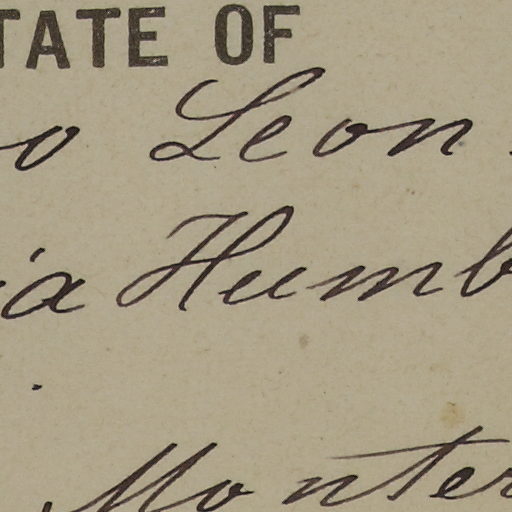 TATE OF
o Leon
ia Humb
Monter